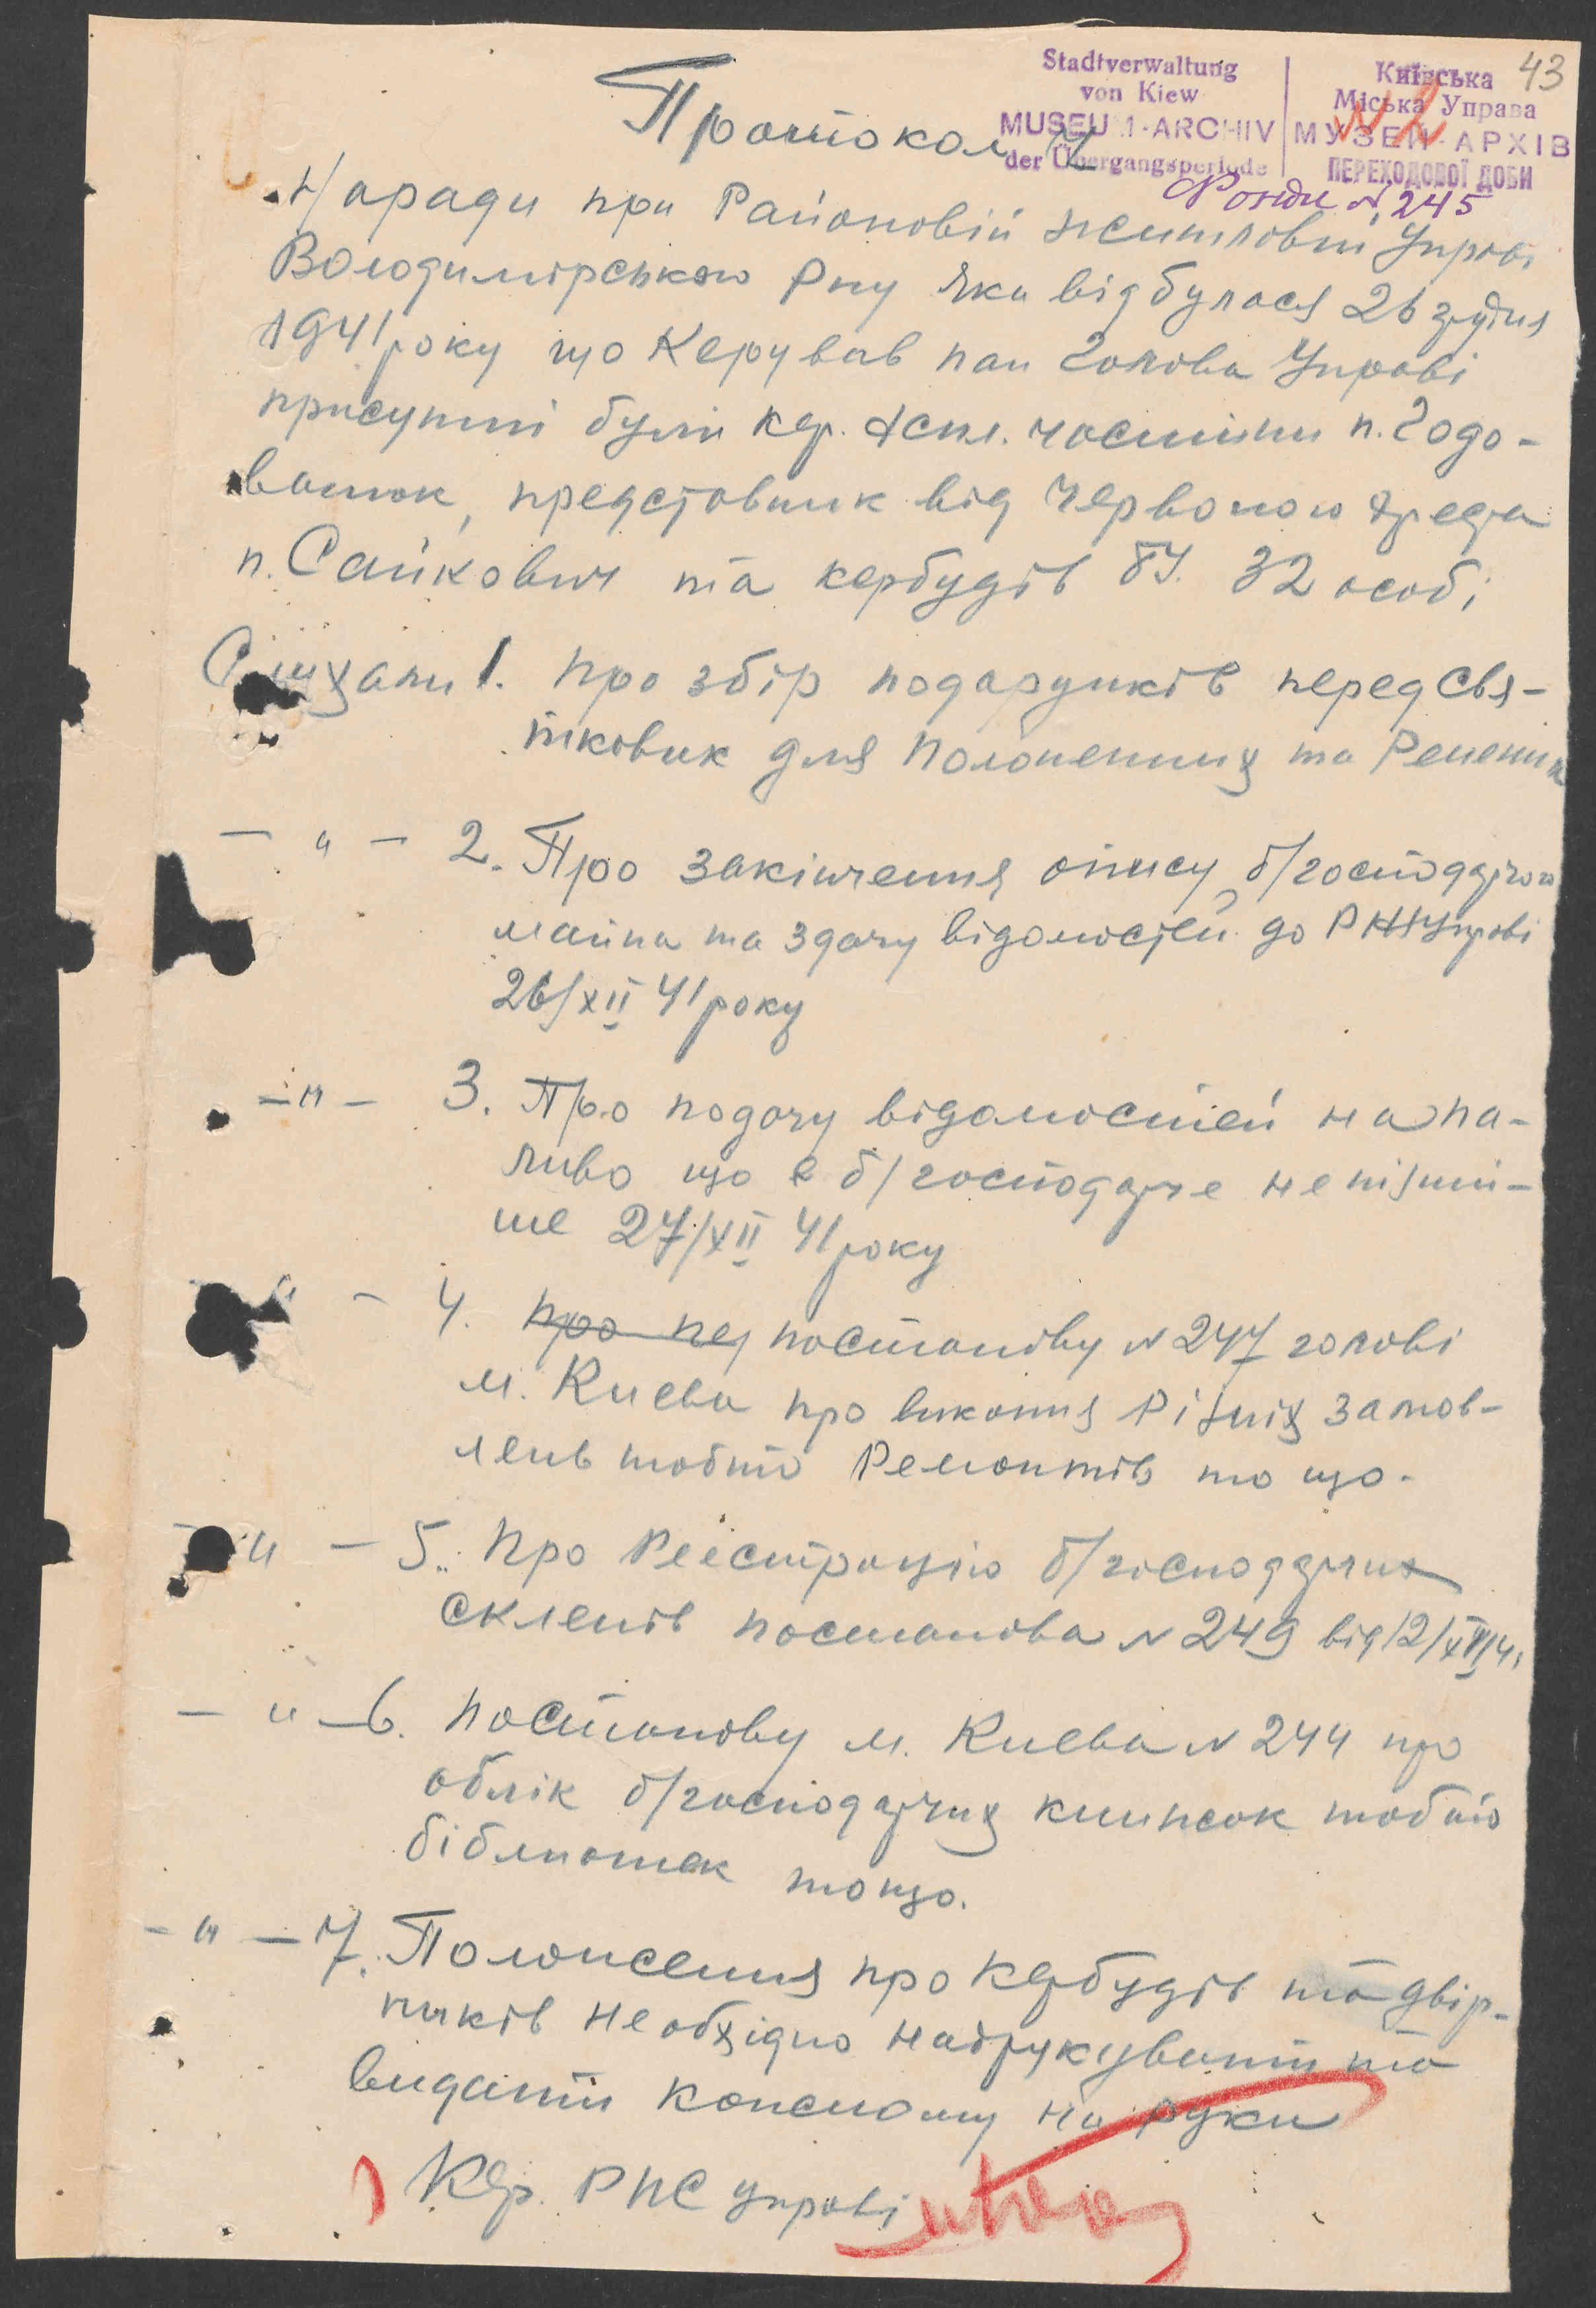 43
Stadtverwaltung
von Kiew
MUSEUM-ARCHIV
der Übergangsperiode
Київська
Міська Управа
МУЗЕЙ-АРХІВ
ПЕРЕХОДОВОЇ ДОБИ
N 2
Фонди N 245
Протокол
Наради при Районовій житловій Управі
Володимірського Р-ну яка відбулася 26 грудня
1941 року що керував пан голова Управі
присутні були кер. експл. частини п. Годо-
ванюк, представник від Червоного Хреста
п. Сайкович та кербудів 32 особі
Слухали 1. Про збір подарунків перед Свя-
тковик для Полоненних та Ранених
— " — 2. Про закінчення опису б/господарчого
майна та здачу відомостей до РЖУправі
26/XII 41 року
— " — 3. Про подачу відомостей на па-
ливо що є б/господарче не пізні-
ше 27/XII 41 року
— " — 4. Про постанову N 247 голові
м. Києва про виконня різних замов-
лень тобто Ремонтів то що.
— " — 5. Про Реєстрацію б/господарчих
склепів постанова N 249 від 12/XII 41
— " — 6. Постанову м. Києва N 244 про
облік б/господарчих книжок тобто
бібліотек тощо.
— " — 7. Положення про Кербудів та двір-
ників необхідно надрукувати та
видати кожному на руки
Кер. РЖ управі